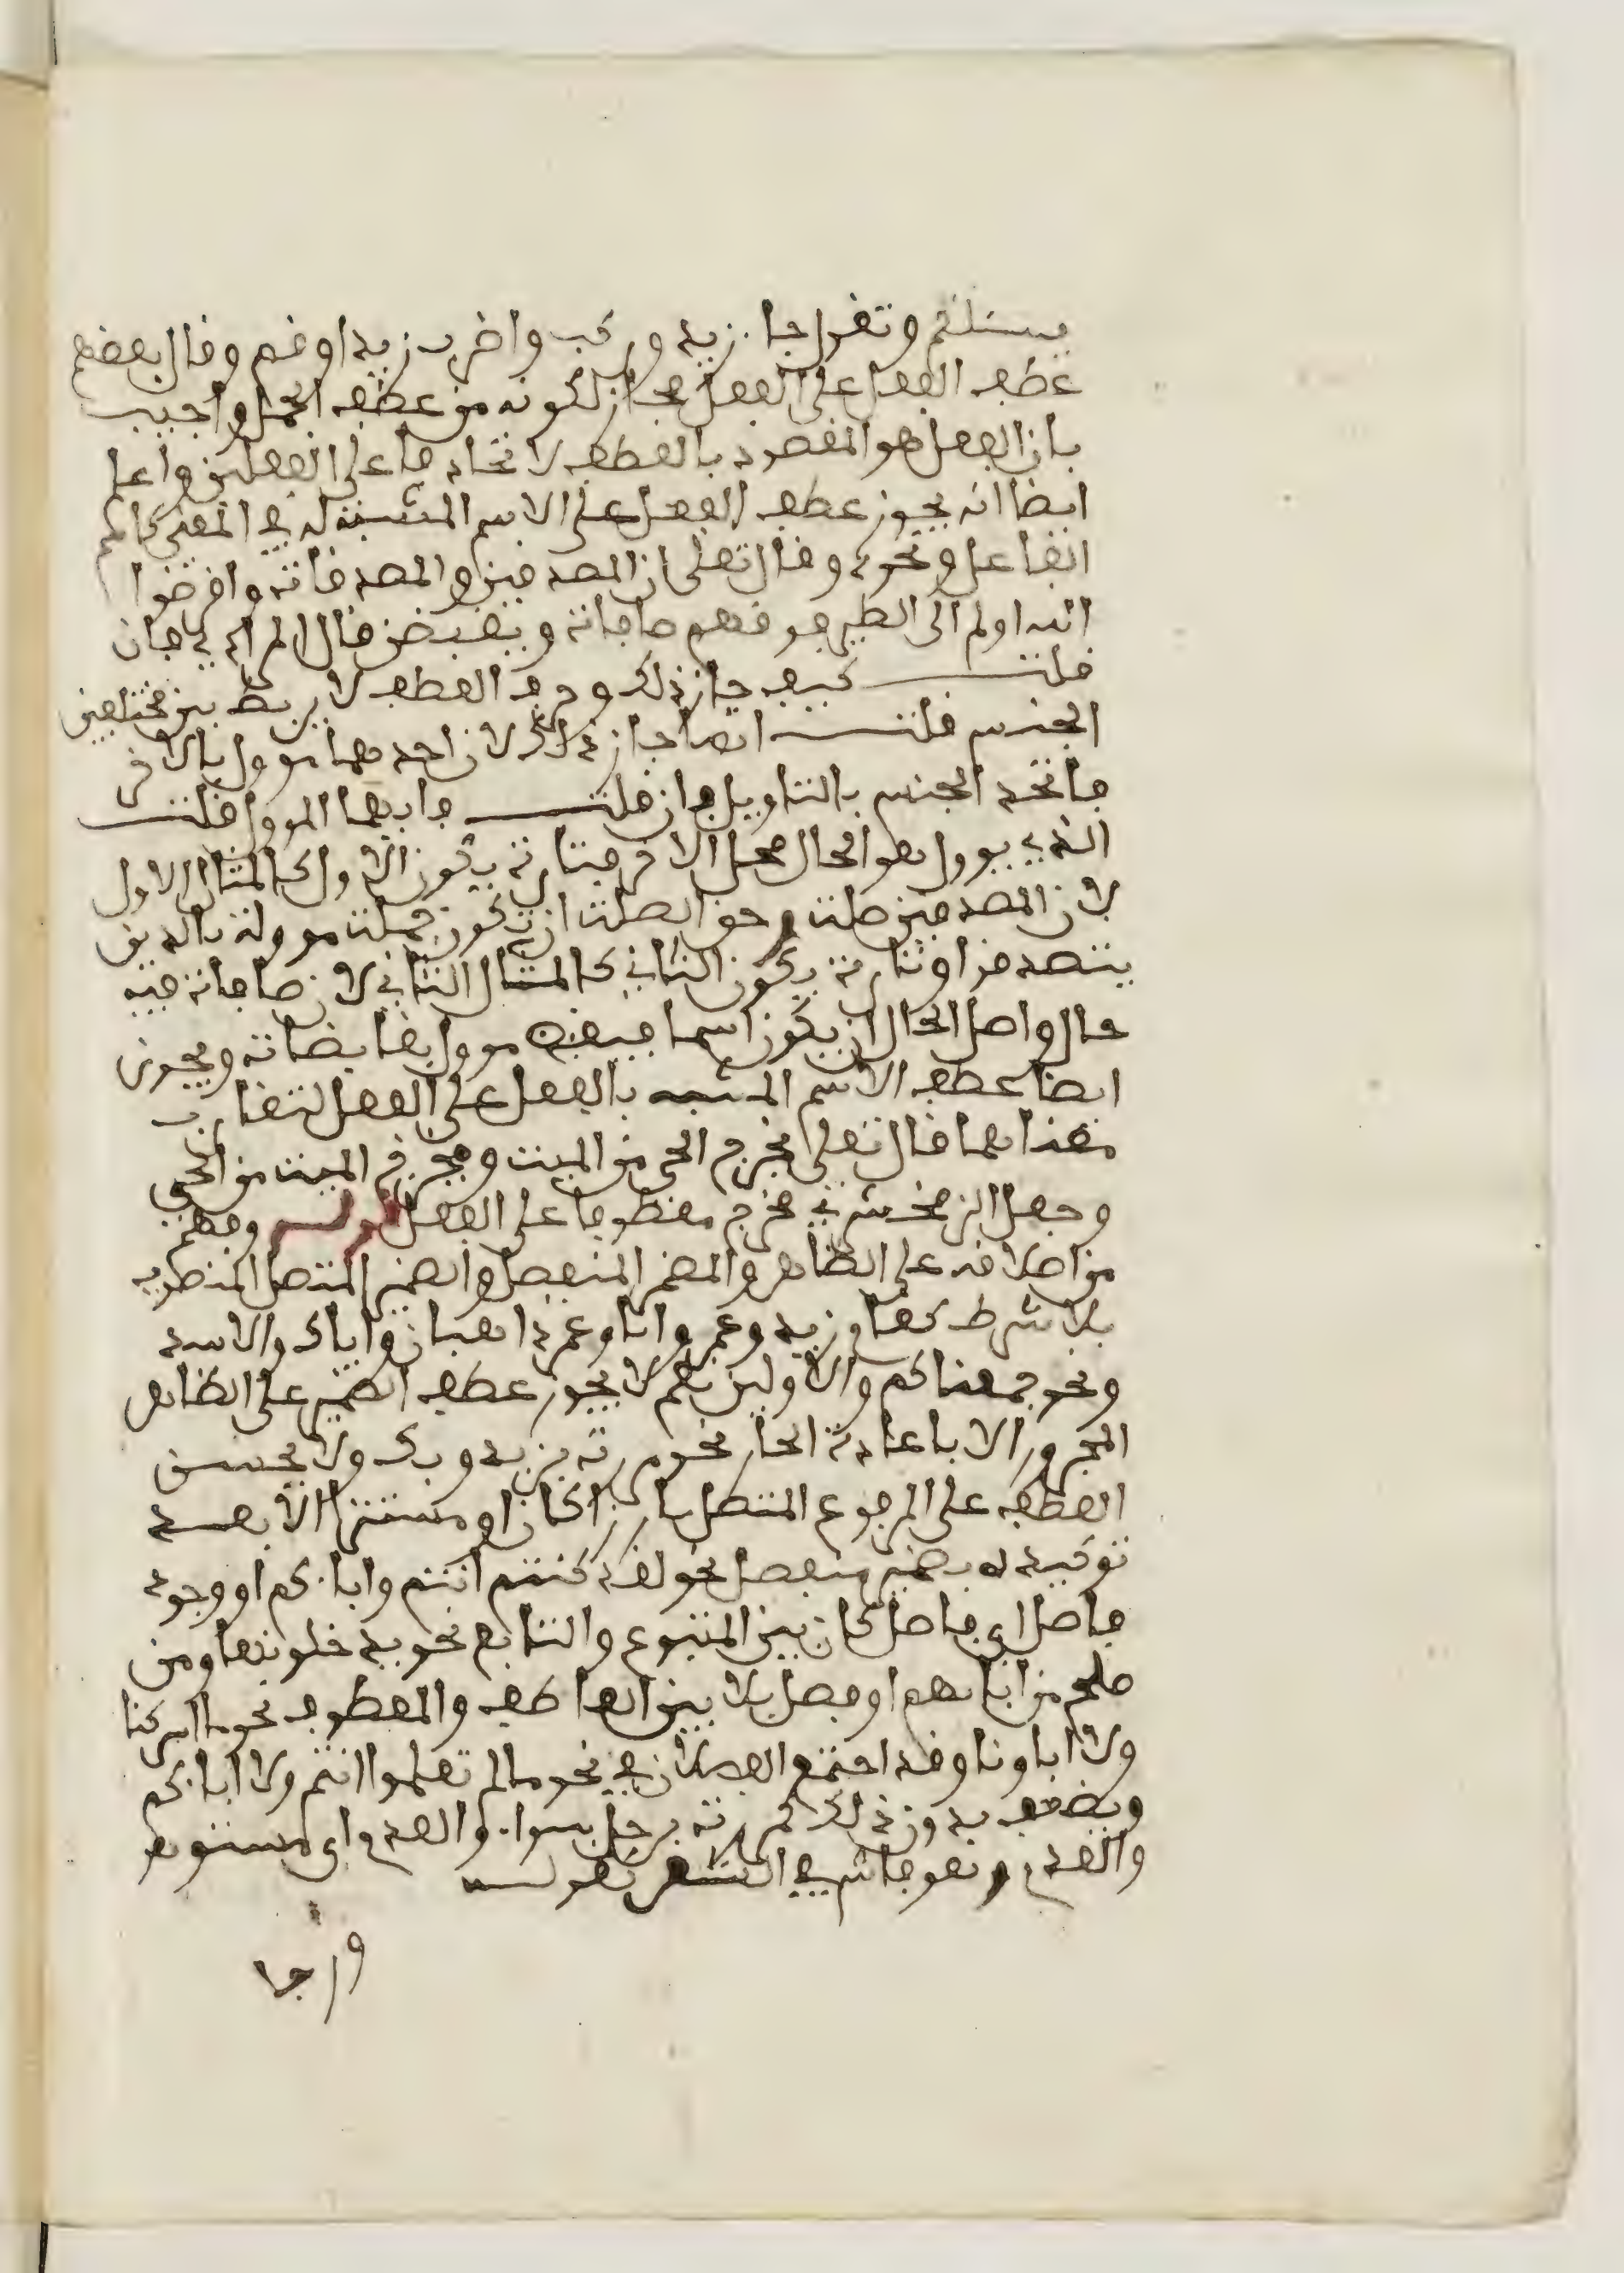 يسئلكم وتقول جا زيد وركب واضرب زيدا وقم وقال بعضهم
عطف الفعل على الفعل مجاز لكونه من عطف الجمل واجيب
بان الفعل هو المقصود بالعطف لاتحاد فاعلى الفعلين واعلم
ايضا انه يجوز عطف الفعل على الاسم المشبه له في المعنى كاسم
الفاعل ونحوه وقال تعلى ان المصدقين والمصدقات واقرضوا
الله اولم الى الطير فوقهم صافات ويقبضن قال المرادي فان
قلت كيف جاز ذلك وحرف العطف لا يربط بين مختلفين
الجنس قلت انما جاز ذلك لان احدهما موول بالاخر
فاتحد الجنس بالتاويل فان قلت فايهما الموول قلت
الذي يوول هو الحال محل الاخر فتارة يكون الاول كالمثال الاول
لان المصدقين صلت وحق الصلت ان تكون جملت موولة بالدين
يتصدقوا وتارة يكون الثاني كالمثال الثاني لان صافات فيه
حال واصل الحال ان يكون اسما فيقبضن موول بقابضات ويجوز
ايضا عطف الاسم المشبه بالفعل على الفعل لتقارب
معناهما قال تعلى مخرج الحي من الميت ومخرج الميت من الحي
وجعل الزمخشري مخرج معطوفا على الفعل قوله وفهم
من اطلاقه على الظاهر والمضمر المنفصل والضمير المتصل المنصوب
بلا شرط كقام زيد وعمرو وانا وعمر ذاهبان واياك والاسد
ونحو جمعناكم والاولين نعم لا يجوز عطف الضمير على الظاهر
المجرور الا باعادة الجار نحو مررت بزيد وبك ولا يحسن
العطف على المرفوع المتصل بارزا كان او مستترا الا بعد
توكيده بضمير منفصل نحو لقد كنتم انتم واباءكم او وجود
فاصل اي فاصل كان بين المتبوع والتابع نحو يدخلونها ومن
صلح من ابايهم او فصل بلا بين العاطف والمعطوف نحو ما اشركنا
ولا اباونا وقد اجتمع الفصلان في نحو ما لم تعلموا انتم ولا اباءكم
ويضعف بدون ذلك كمررت برجل سواء والعدم اي مستو هو
والعدم وهو فاش في الشعر كقوله
ورجا